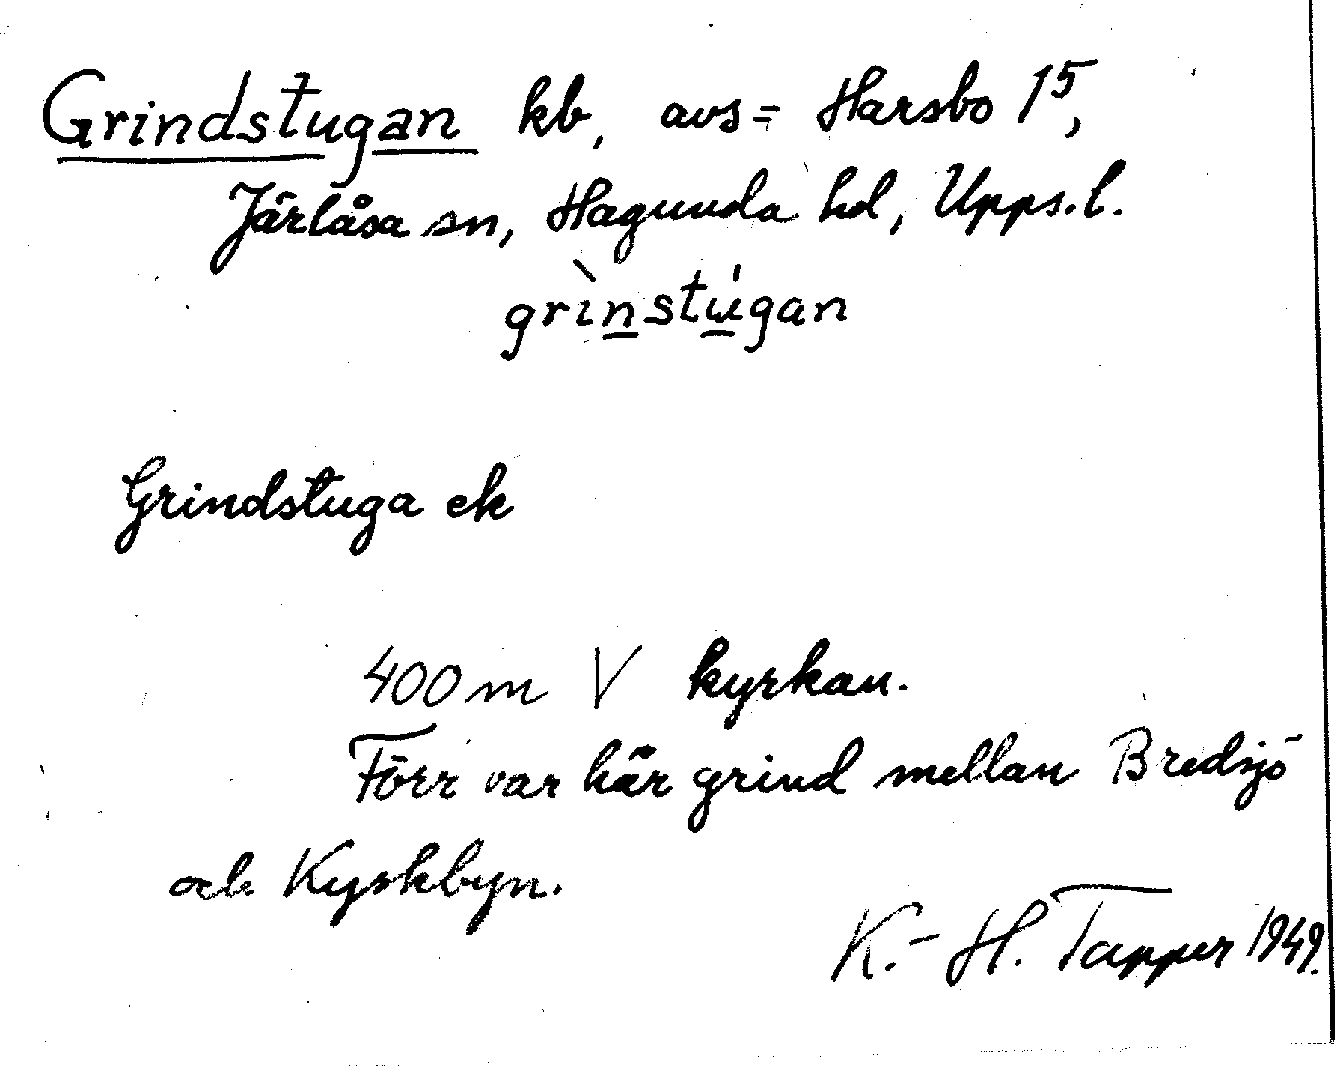 Grindstugan kb, avs = Harsbo 1⁵,
Järlåsa sn, Hagunda hd, Upps.l.
grìnstúgan
Grindstuga ek
400 m V kyrkan.
Förr var här grind mellan Bredsjö
och Kyrkbyn.
K.-H. Tapper 1949.